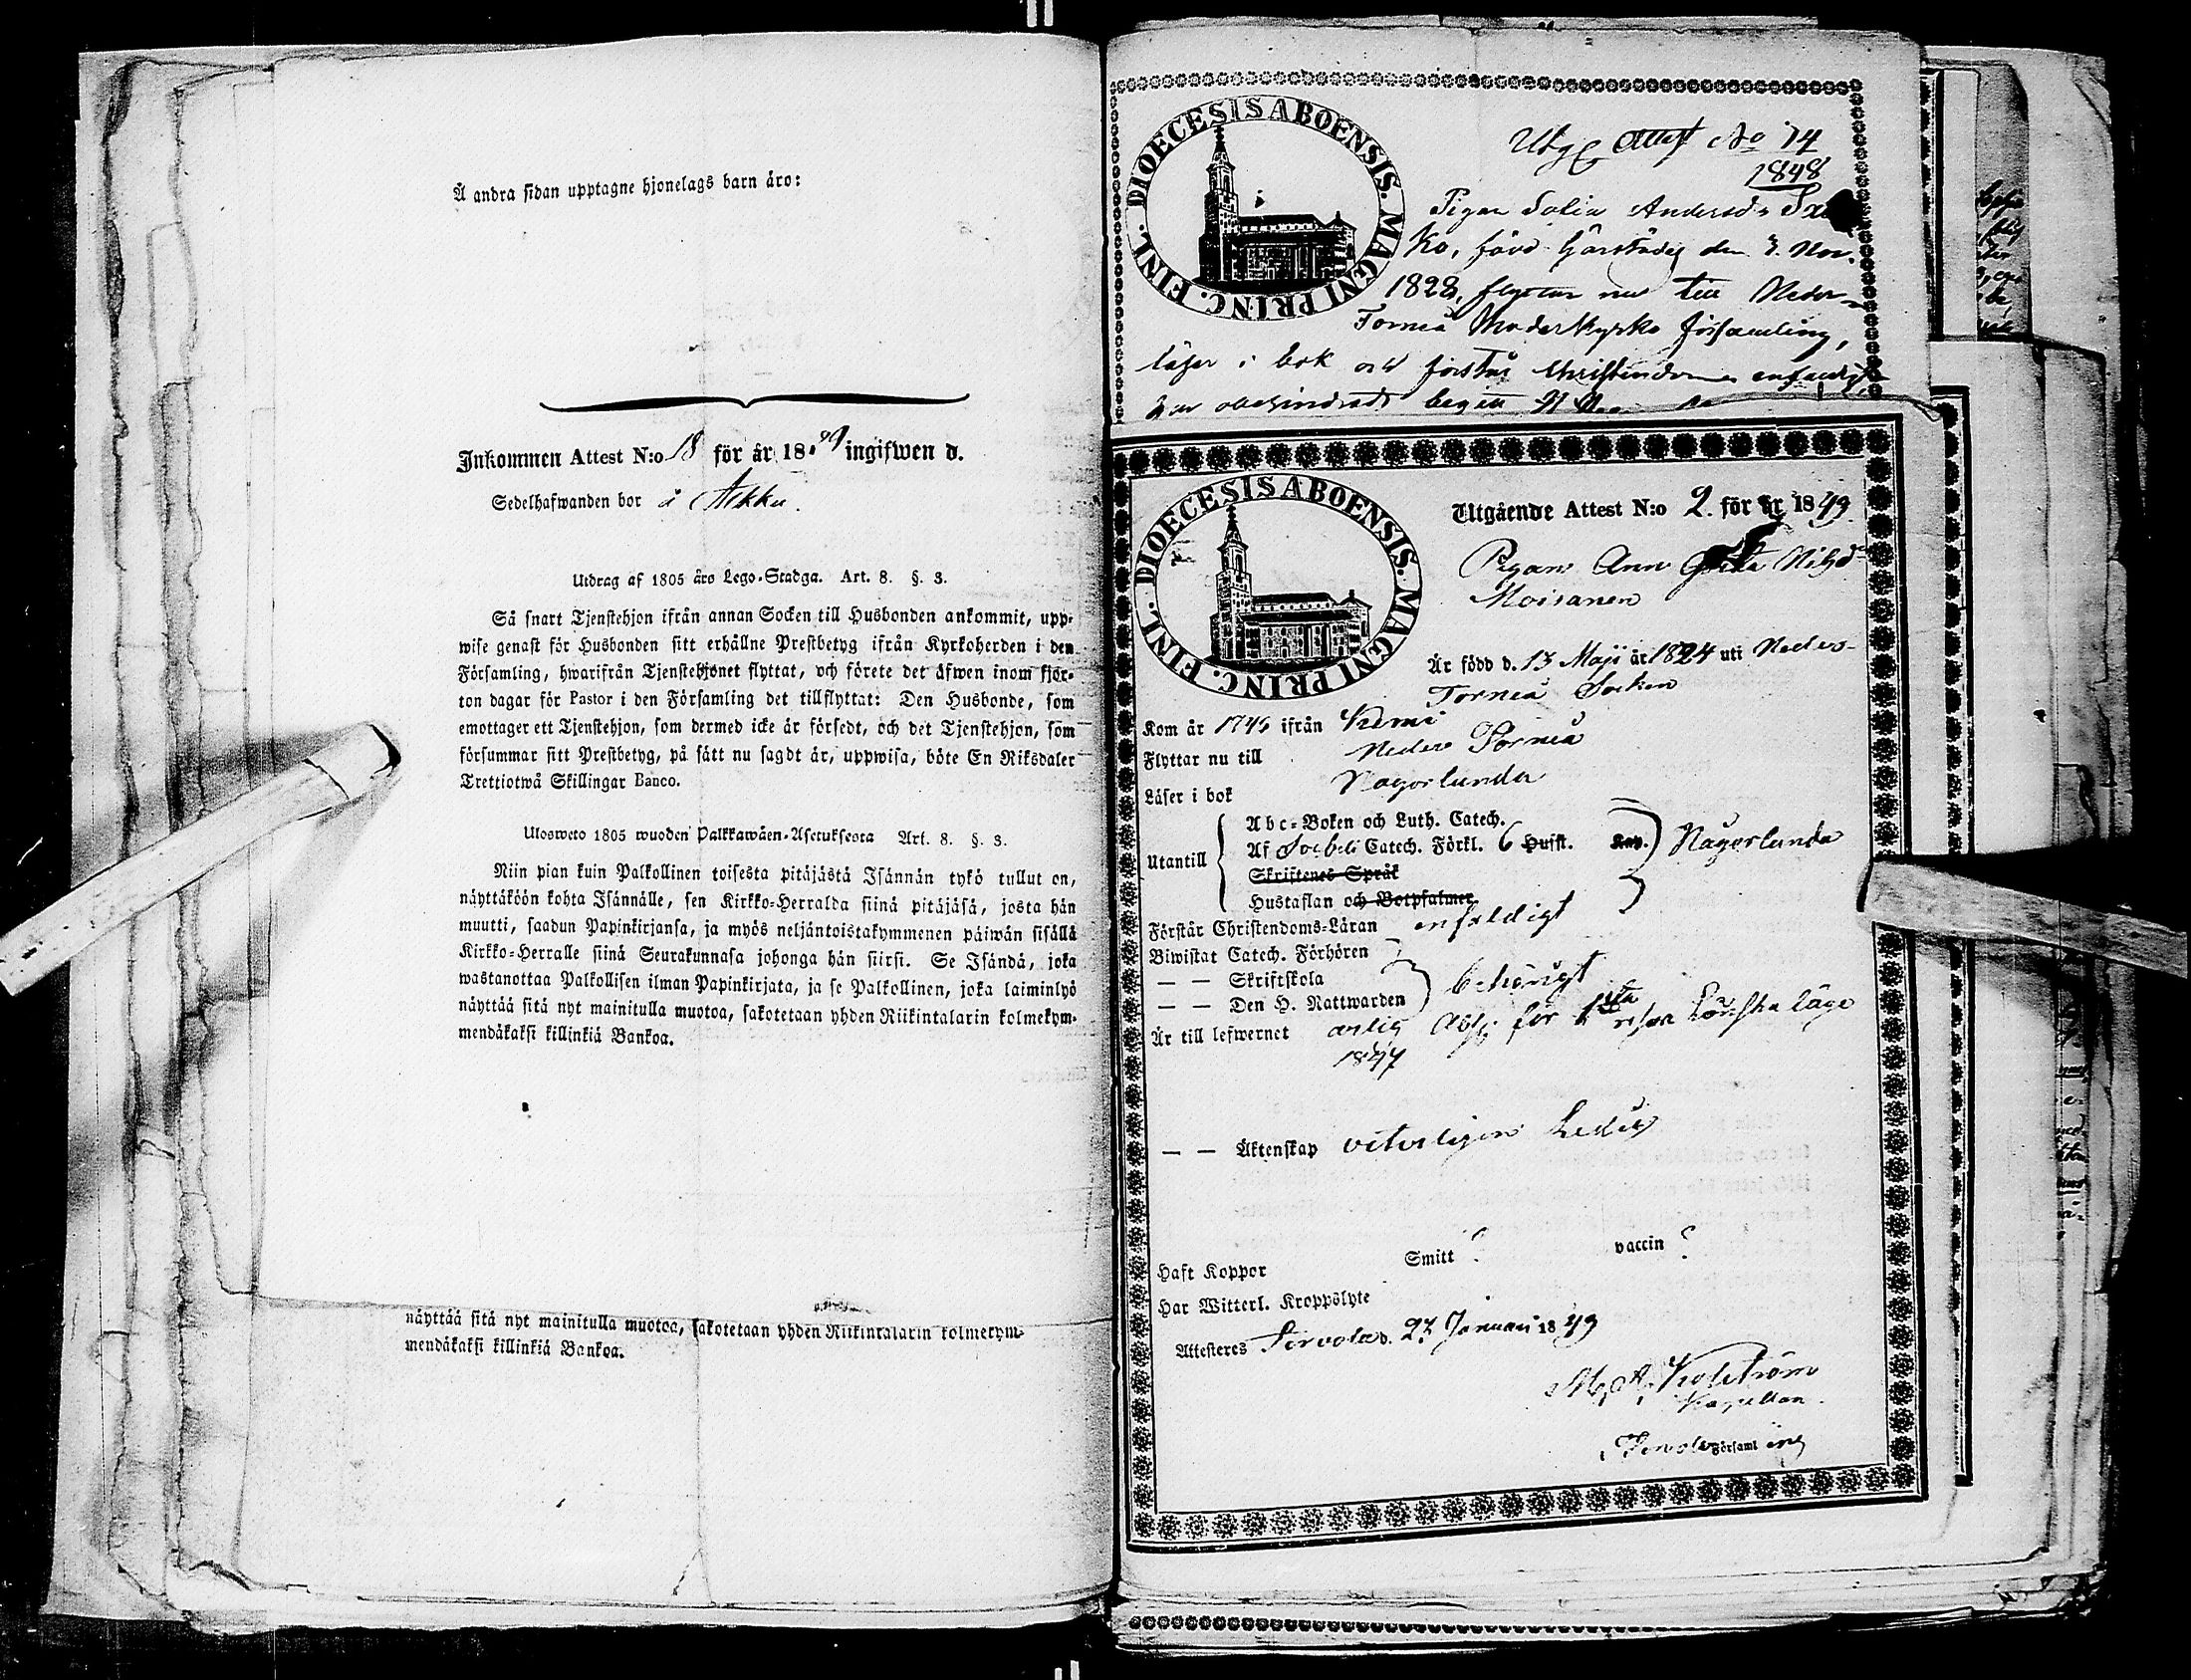 Å andra sidan upptagne hjonelags barn äro:
Inkommen Attest N:o 18 för år 18 49 ingifwen d.
Sedelhafwanden bor å Akku.
Utdrag af 1805 års Lego-Stadga. Art. 8. §. 3.
Så snart Tjenstehjon ifrån annan Socken till Husbonden ankommit, upp-
wise genast för Husbonden sitt erhållne Prestbetyg ifrån Kyrkoherden i den
Församling, hwarifrån Tjenstehjonet flyttat, och förete det äfwen inom fjor-
ton dagar för Pastor i den Församling det tillflyttat: Den Husbonde, som
emottager ett Tjenstehjon, som dermed icke är försedt, och det Tjenstehjon, som
försummar sitt Prestbetyg, på sätt nu sagdt är, uppwisa, böte En Riksdaler
Trettiotwå Skillingar Banco.
Ulosweto 1805 wuoden Palkkawäen-Asetuksesta Art. 8. §. 3.
Niin pian kuin Palkollinen toisesta pitäjästä Isännän tykö tullut on,
näyttäköön kohta Isännälle, sen Kirkko-Herralda siinä pitäjäsä, josta hän
muutti, saadun Papinkirjansa, ja myös neljäntoistakymmenen päiwän sisällä
Kirkko-Herralle siinä Seurakunnasa johonga hän siirsi. Se Isändä, joka
wastanottaa Palkollisen ilman Papinkirjata, ja se Palkollinen, joka laiminlyö
näyttää sitä nyt mainitulla muotoa, sakotetaan yhden Riikintalarin kolmekym-
mendäkaksi killinkiä Bankoa.
näyttää sitä nyt mainitulla muotoa, sakotetaan yhden Riikintalarin kolmekym-
mendäkaksi killinkiä Bankoa.
DIOECESIS ABOENSIS. MAGNI PRINC. FINL.
Utg. Attest No 14
1848
Pigan Sofia Andersd:r
ko, född härstädes den 3. Nov.
1828, flyttar nu till Neder-
Torneå Moderkyrko församling,
läser i bok och förstår Christendomen enfaldigt
har obehindradt begått H.
DIOECESIS ABOENSIS. MAGNI PRINC. FINL.
Utgående Attest N:o 2. för år 1849
Pigan Ann Greta Nilsd:
Moisanen
Är född d. 13 Maji år 1824 uti Neder-
Torneå Socken
Kom år 1745 ifrån Kemi
Flyttar nu till Neder Torneå
Läser i bok Någorlunda
Utantill
Abc-Boken och Luth. Catech.
Af Svebeli Catech. Förkl. 6 Hufst. Kap. Någorlunda
Skriftenes Språk
Hustaflan och Botpsalmer
Förstår Christendoms-Läran enfaldigt
Biwistat Catech. Förhören
— — Skriftskola behörigt
— — Den H. Nattwarden
Är till lefwernet ärlig Abs. för 1sta resan Lönskaläge
1847
— — Äktenskap veterligen ledig
Haft Koppor Smitt ? vaccin ?
Har Witterl. Kroppslyte
Attesteres Tervola d. 23 Januari 1849
Kapellan.
Tervola Församling